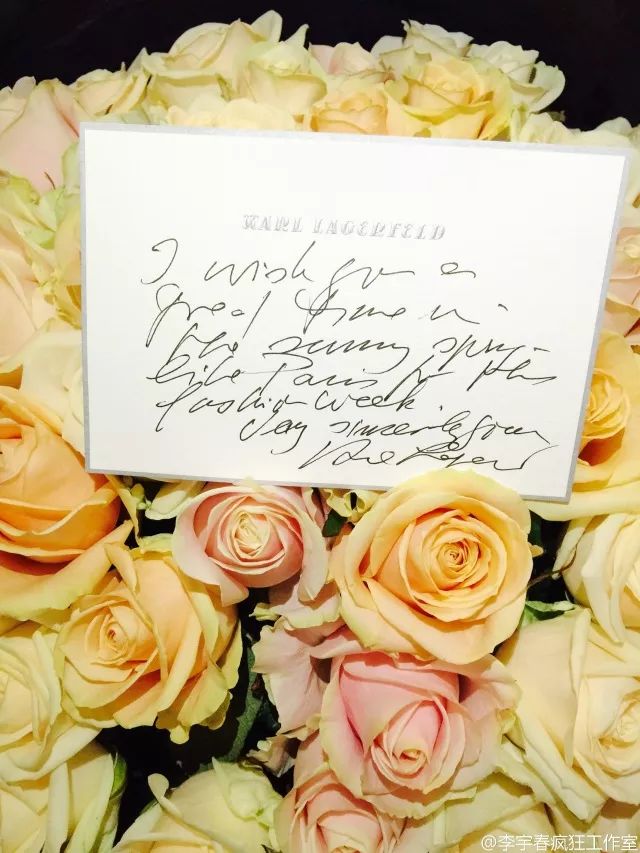 KARL LAGERFELD
I wish you a
great time in
the sunny spring
like Paris for this
fashion week.
Very sincerely yours
@李宇春疯狂工作室